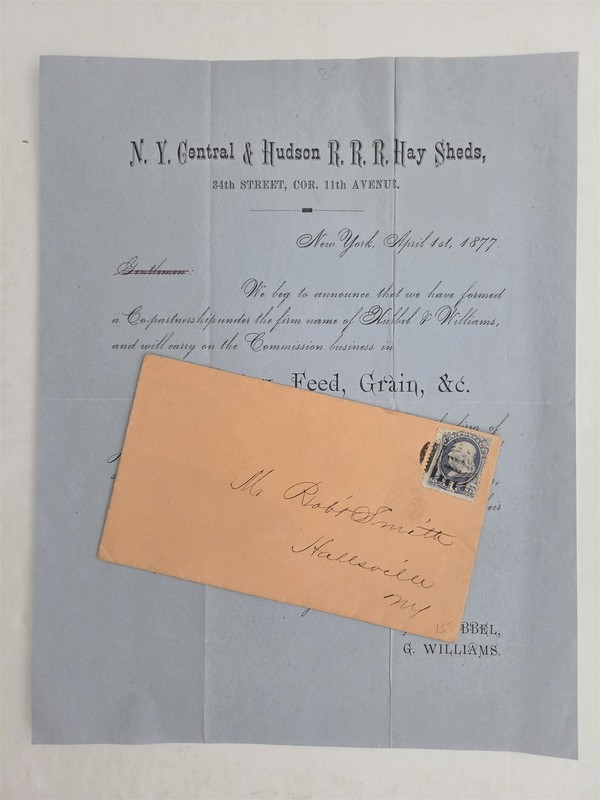 N. Y. Central & Hudson R. R. R. Hay Sheds,
34th STREET, COR. 11th AVENUE.
New York, April 1st, 1877.
Gentlemen:
We beg to announce that we have formed
a Co-partnership under the firm name of Hubbel & Williams,
and will carry on the Commission business in
Feed, Grain, &c.
firm of
Mr Robt Smith
Hallsville
NY
15
BBEL,
G. WILLIAMS.